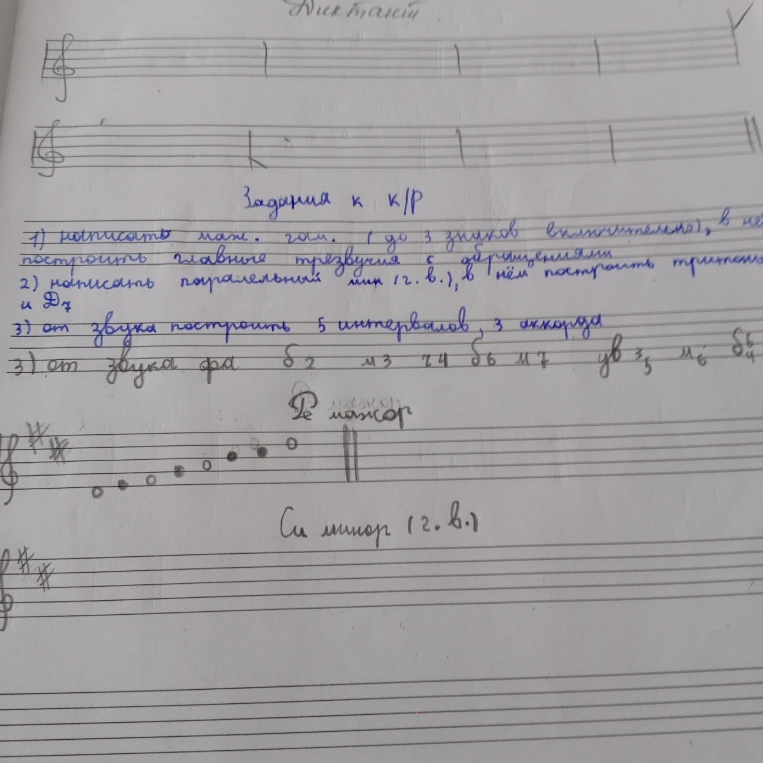 Диктант
Задания к к/р
1) написать маж. гам. (до 3 знаков включительно), в ней
построить главные трезвучия с обращениями
2) написать паралельный мин (г. в.), в нём построить тритоны
и D7
3) от звука построить 5 интервалов, 3 аккорда
3) от звука фа б2 м3 ч4 б6 м7 ув 3 5 м6 б6 4
Ре мажор
Си минор (г. в.)